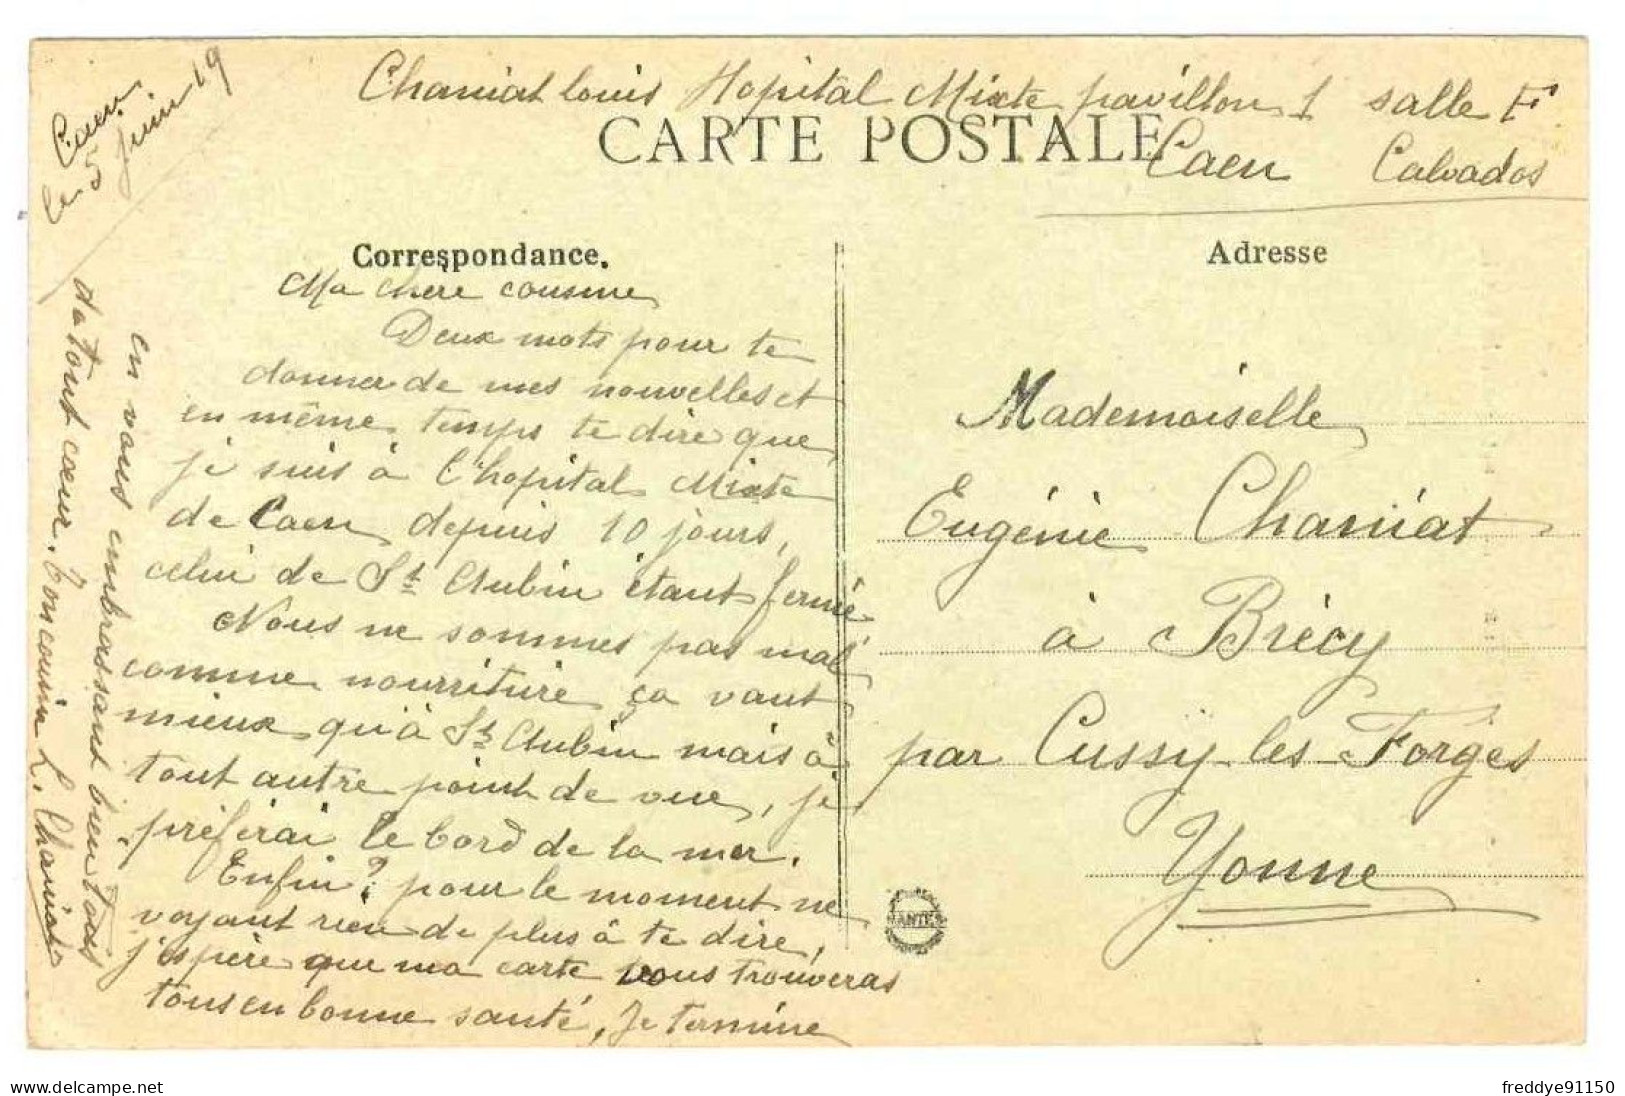 Caen
le 5 juin 19
Chaniat louis Hopital Mixte pavillon 1 salle F
CARTE POSTALE
Caen Calvados
Correspondance.
Adresse
Ma chere cousine
Deux mots pour te
donner de mes nouvelles et
en même temps te dire que
je suis à l'hopital Mixte
de Caen depuis 10 jours,
celui de St Aubin étant fermé
Nous ne sommes pas mal
comme nourriture ça vaut
mieux qu'à St Aubin mais à
tout autre point de vue, je
préférai le bord de la mer.
Enfin? pour le moment ne
voyant rien de plus à te dire,
j'espère que ma carte vous trouveras
tous en bonne santé, Je termine
en vous embrassant bien tous
de tout cœur. Ton cousin L. Chaniat
Mademoiselle
Eugénie Chaniat
à Brécy
par Cussÿ-les-Forges
Yonne
NANTES
freddye91150